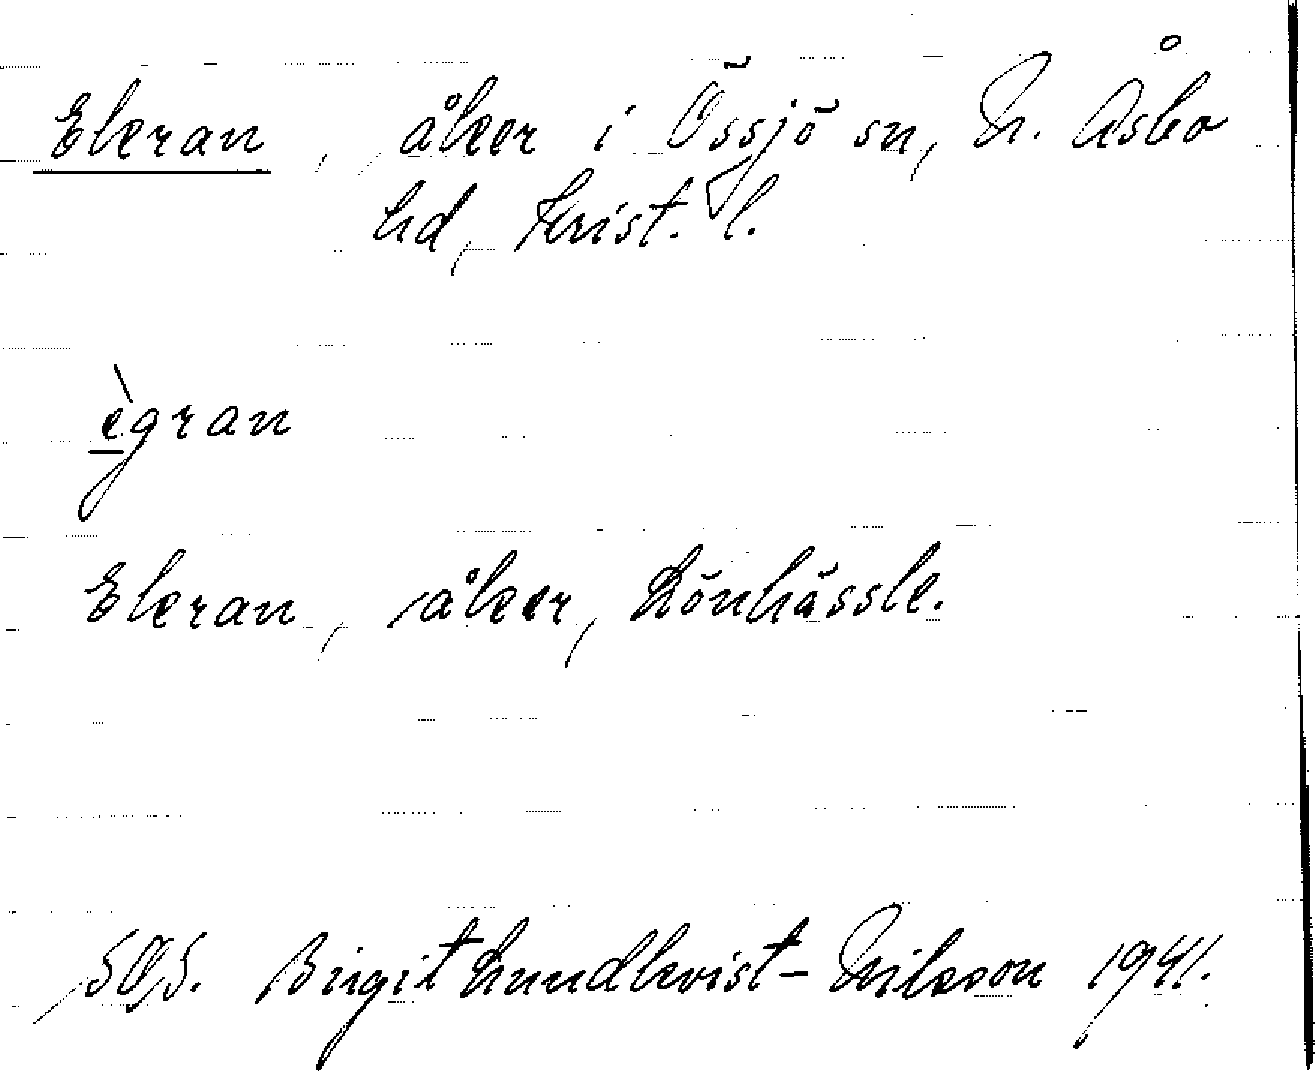 Ekran, åker i Össjö sn, N. Åsbo
hd, Krist. l.
ègran
Ekran, åker, Lönhässle.
Birgit Lundkvist-Nilsson 1941.